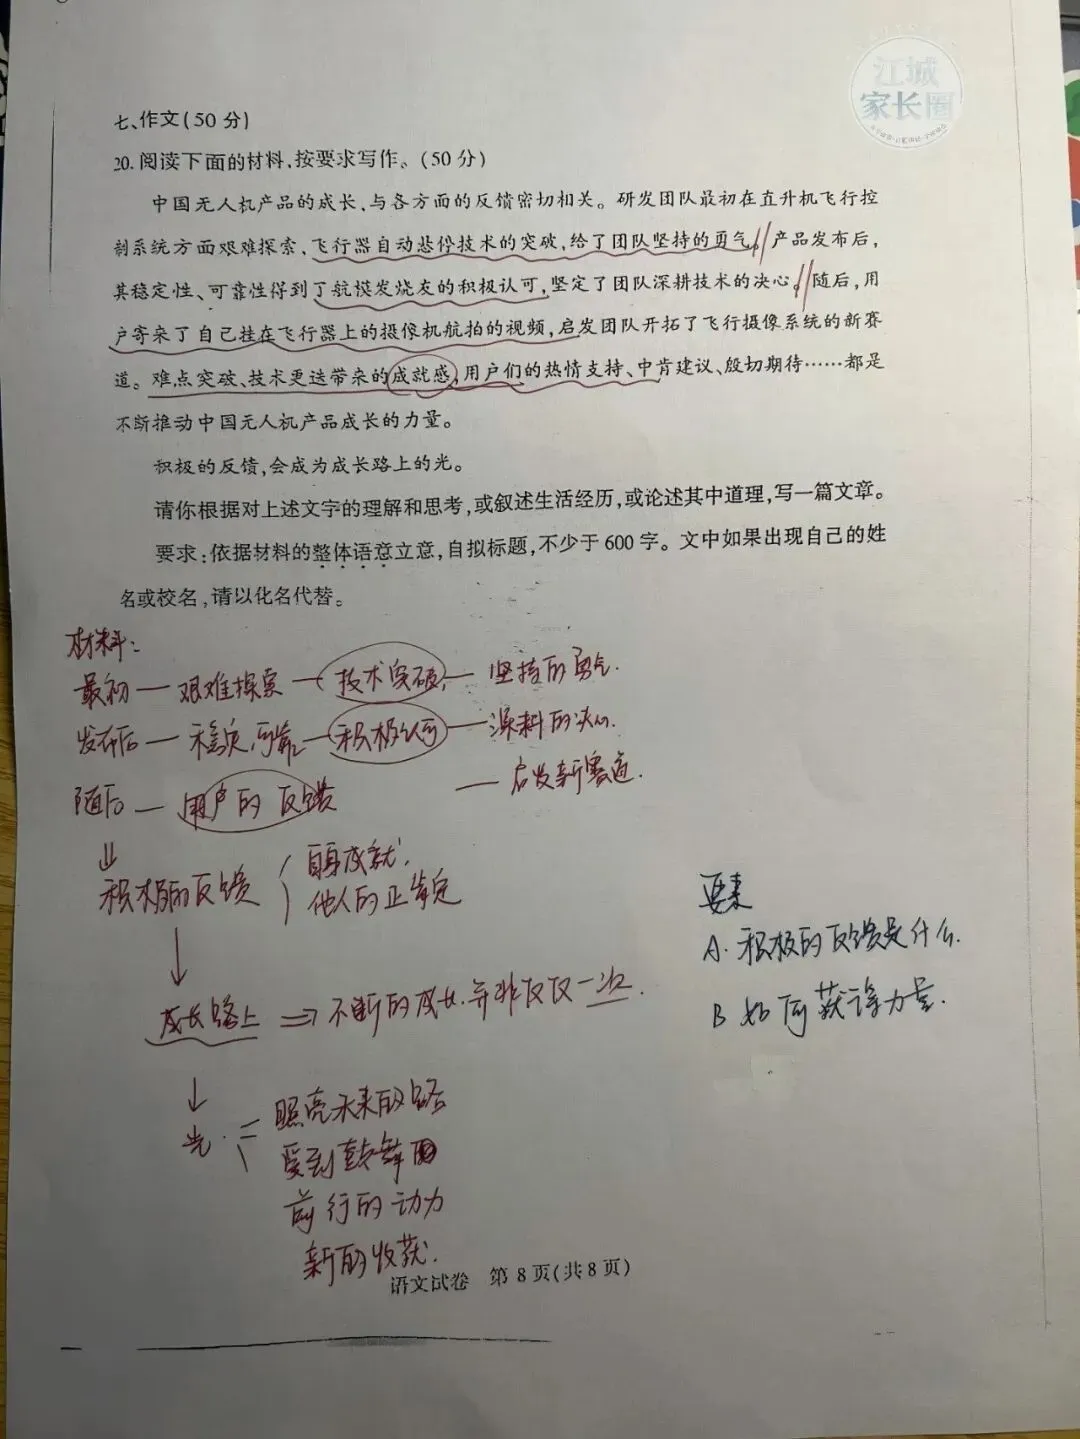 江城
家长圈
七、作文(50分)
20. 阅读下面的材料,按要求写作。(50分)
中国无人机产品的成长,与各方面的反馈密切相关。研发团队最初在直升机飞行控
制系统方面艰难探索,飞行器自动悬停技术的突破,给了团队坚持的勇气。产品发布后,
其稳定性、可靠性得到了航模发烧友的积极认可,坚定了团队深耕技术的决心。随后,用
户寄来了自己挂在飞行器上的摄像机航拍的视频,启发团队开拓了飞行摄像系统的新赛
道。难点突破、技术更迭带来的成就感,用户们的热情支持、中肯建议、殷切期待……都是
不断推动中国无人机产品成长的力量。
积极的反馈,会成为成长路上的光。
请你根据对上述文字的理解和思考,或叙述生活经历,或论述其中道理,写一篇文章。
要求:依据材料的整体语意立意,自拟标题,不少于600字。文中如果出现自己的姓
名或校名,请以化名代替。
材料:
最初—艰难探索—技术突破—坚持的勇气.
发布后—稳定.可靠—积极认可—深耕的决心.
随后—用户的反馈—启发新赛道.
积极的反馈 自身成就.
他人的正肯定
要素
A. 积极的反馈是什么.
成长路上⇒不断的成长.并非仅仅一次.
B 如何获得力量.
光.=照亮未来的路
受到鼓舞
前行的动力
新的收获.
语文试卷 第8页(共8页)